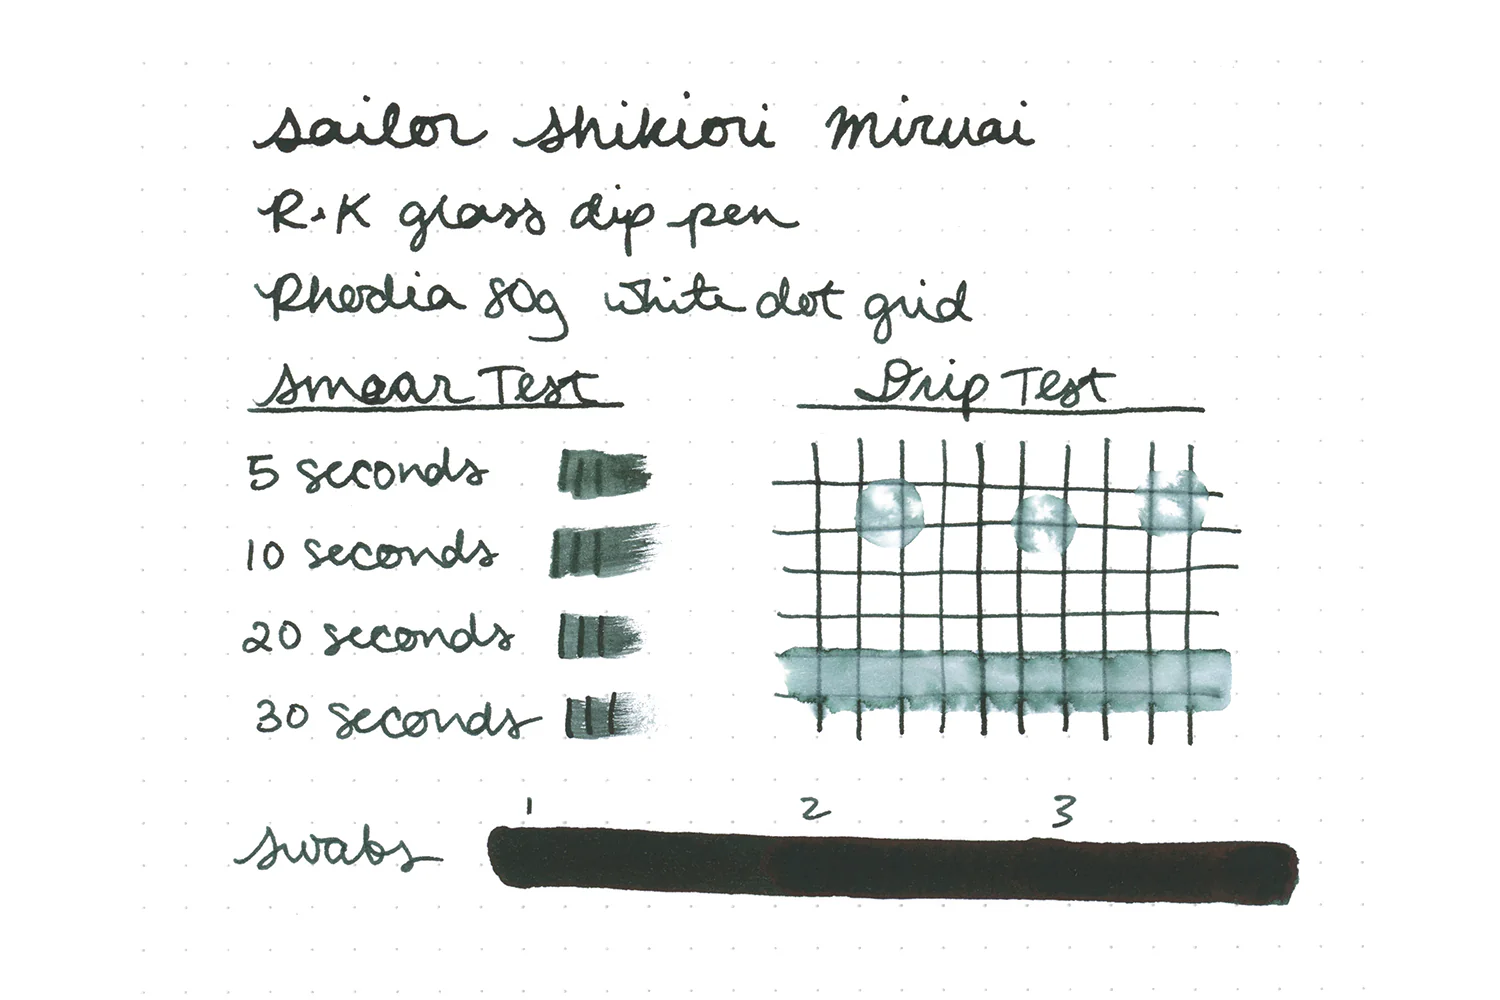 sailor shikiori miruai
R·K glass dip pen
Rhodia 80g white dot grid
Smear Test
Drip Test
5 seconds
10 seconds
20 seconds
30 seconds
1 2 3
swabs